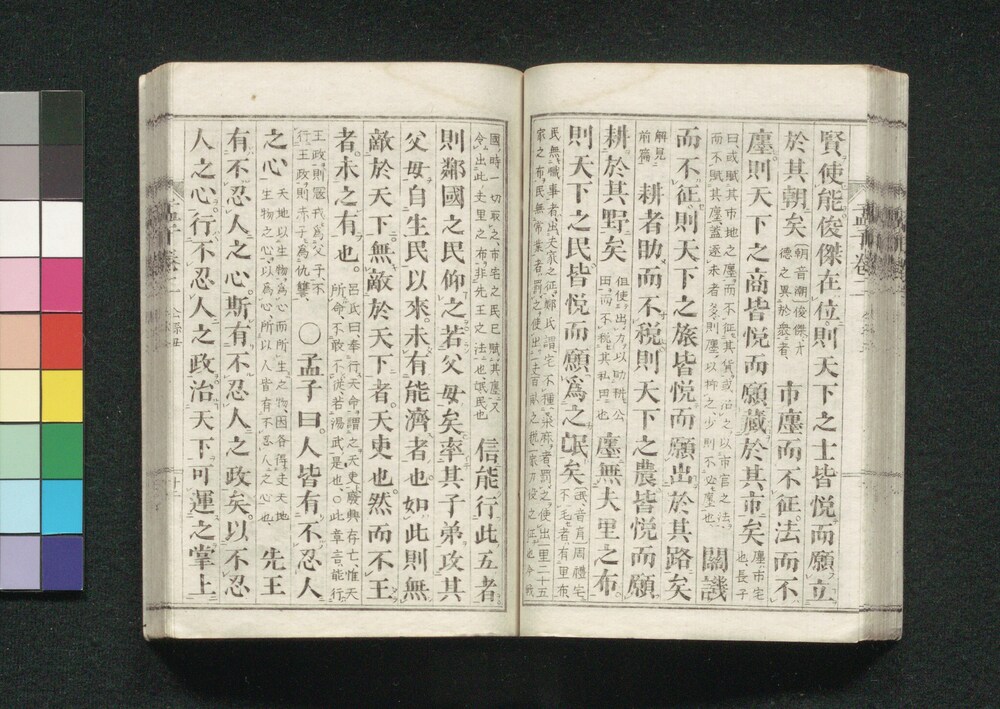 賢使能俊傑在位則天下之士皆悅而願立
於其朝矣朝音潮俊傑才德之異於衆者市廛而不征法而不
廛則天下之商皆悅而願藏於其市矣廛市宅也張子
曰或賦其市地之廛而不征其貨或治之以市官之法
而不賦其廛蓋逐末者多則廛以抑之少則不必廛也關譏
而不征則天下之旅皆悅而願出於其路矣
解見前篇耕者助而不稅則天下之農皆悅而願
耕於其野矣但使出力以助耕公田而不稅其私田也廛無夫里之布
則天下之民皆悅而願為之氓矣氓音盲周禮宅不毛者有里布
民無職事者出夫家之征鄭氏謂宅不種桑麻者罰之使出一里二十五
家之布民無常業者罰之使出一夫百畝之稅一家力役之征也今戰
國時一切取之市宅之民已賦其廛又
令出此夫里之布非先王之法也氓民也信能行此五者
則鄰國之民仰之若父母矣率其子弟攻其
父母自生民以來未有能濟者也如此則無
敵於天下無敵於天下者天吏也然而不王
者未之有也呂氏曰奉行天命謂之天吏廢興存亡惟天
所命不敢不從若湯武是也〇此章言能行
王政則寇戎為父子不
行王政則赤子為仇讐〇孟子曰人皆有不忍人
之心天地以生物為心而所生之物因各得夫天地
生物之心以為心所以人皆有不忍人之心也先王
有不忍人之心斯有不忍人之政矣以不忍
人之心行不忍人之政治天下可運之掌上